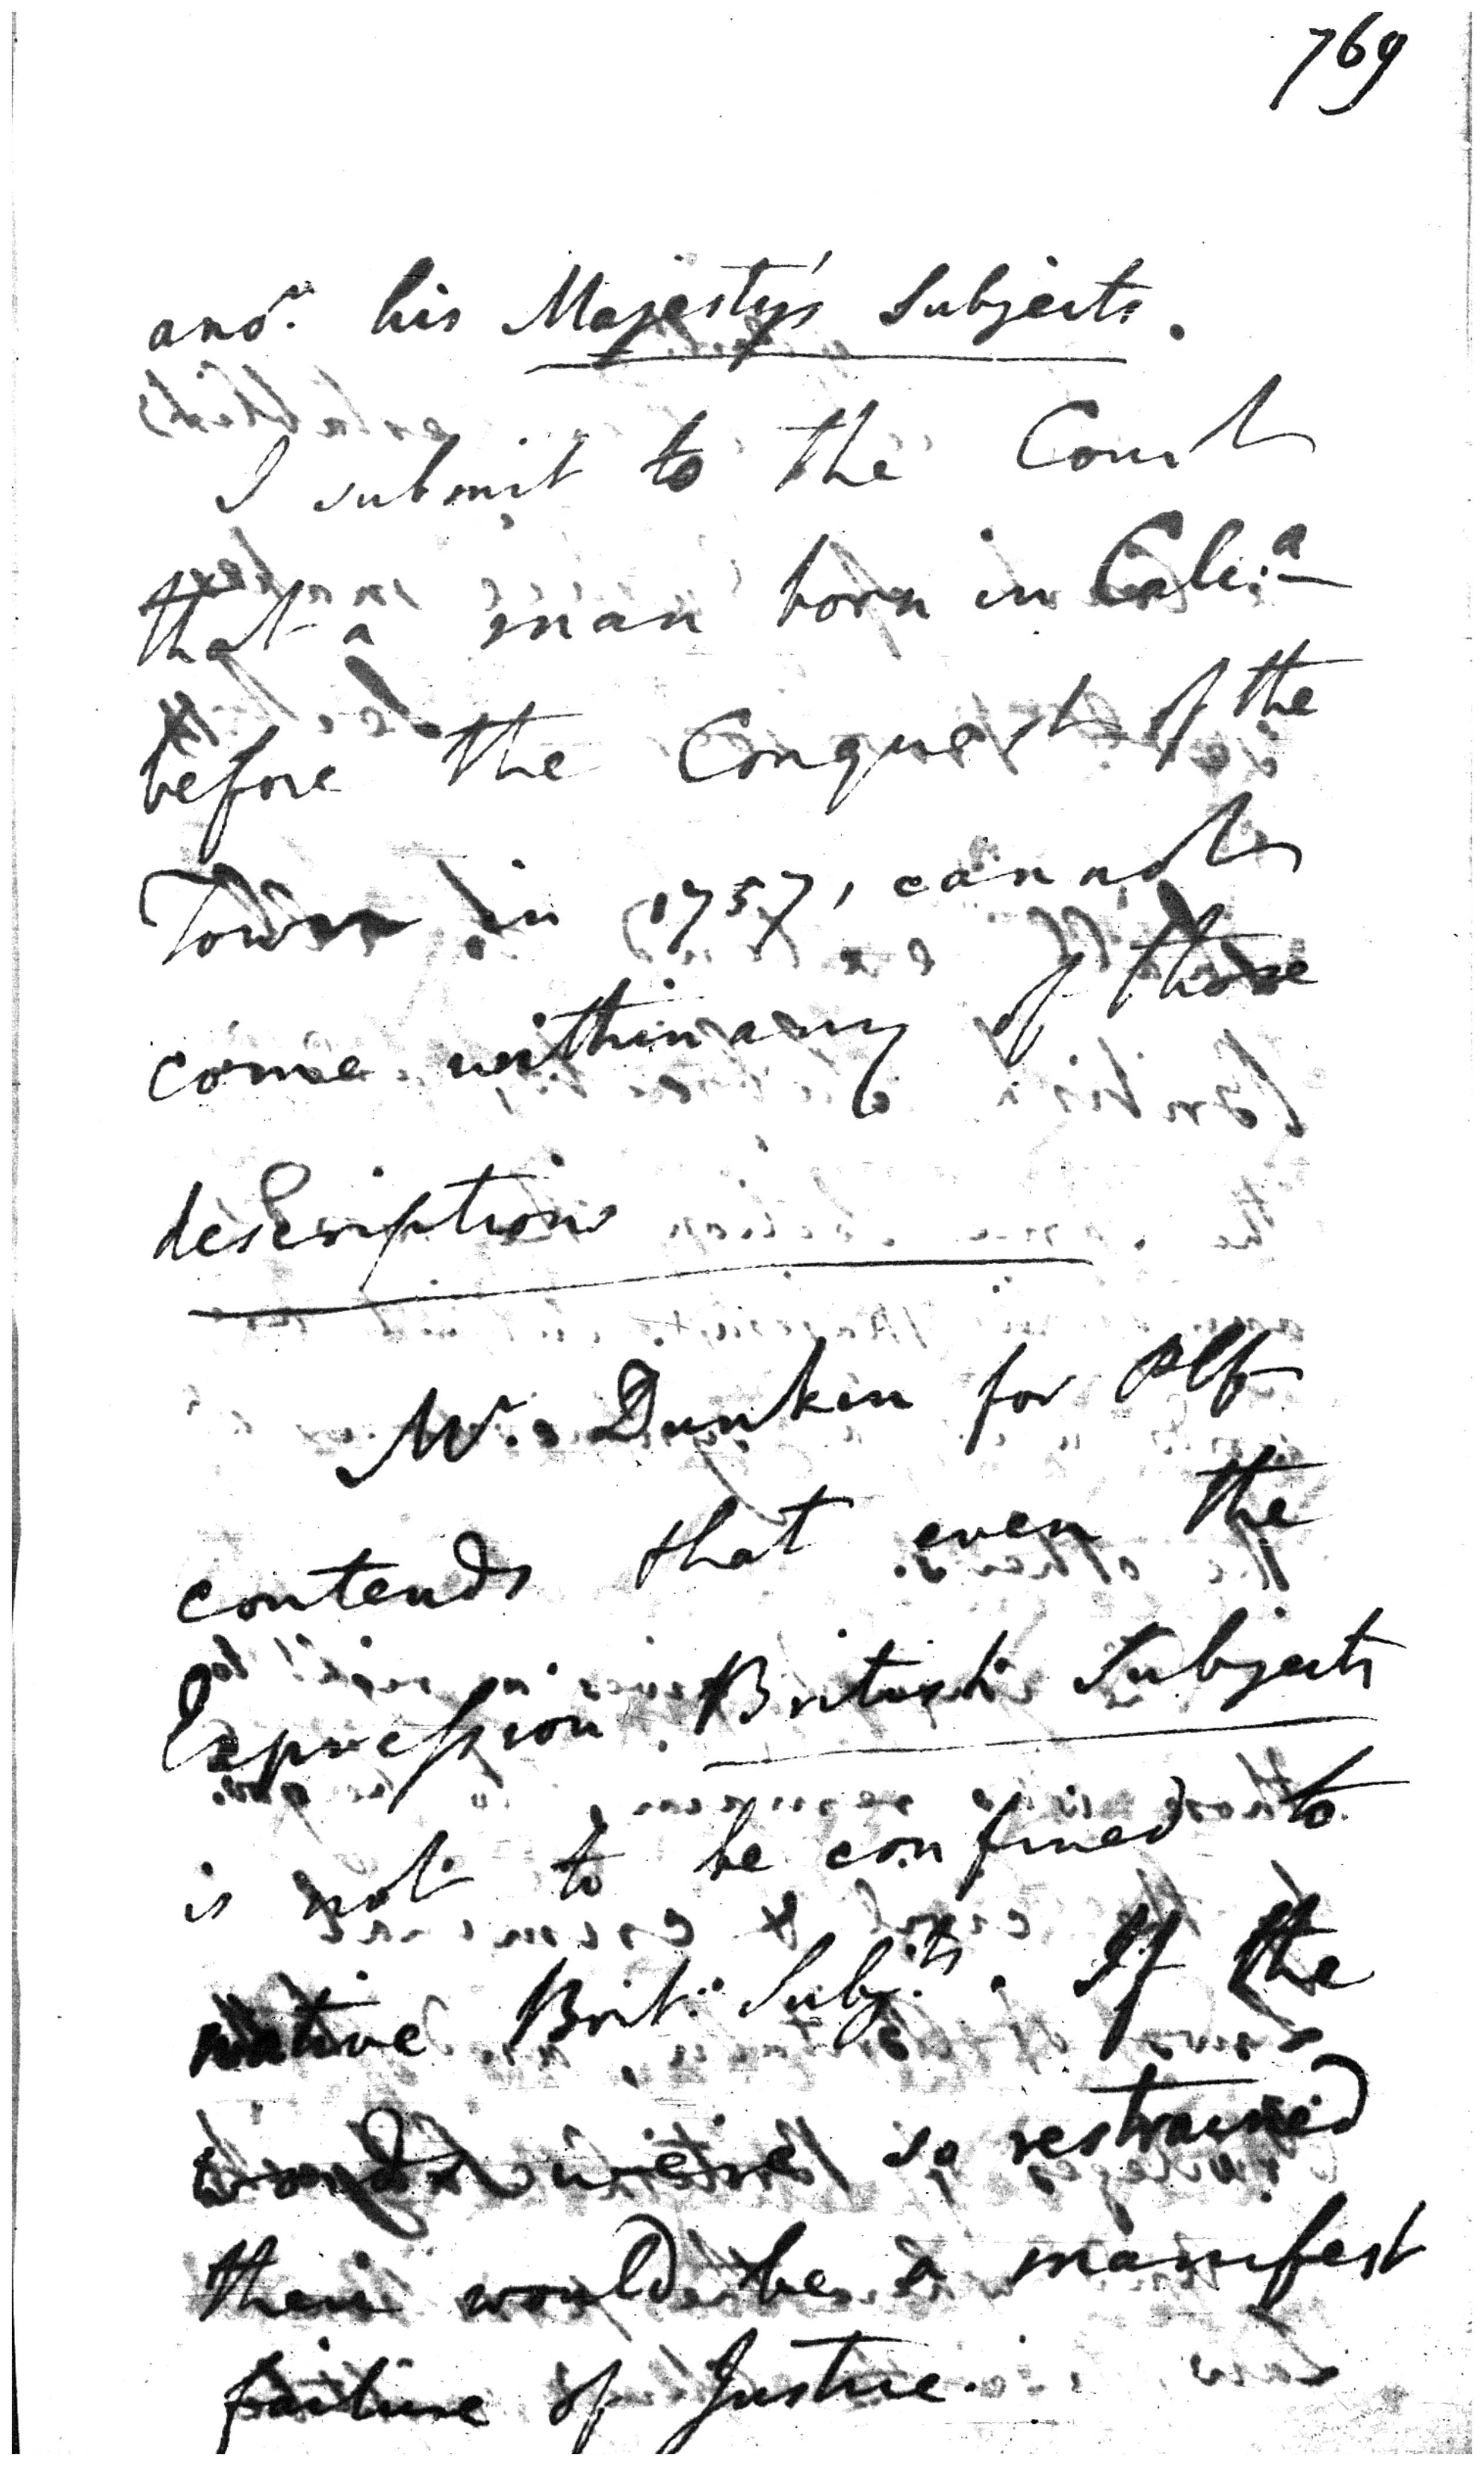 769
ano.r his Majesty's Subjects.
I submit to the Court
that a man born in Calc:a
before the Conquest of the
Town in 1757, cannot
come within any of those
descriptions
Mr. Dunkin for Plff
contends that even the
Expression British Subjects
is not to be confined to
native Brit: Subj:ts. If the
words were so restrained
their would be a manifest
failure of Justice.